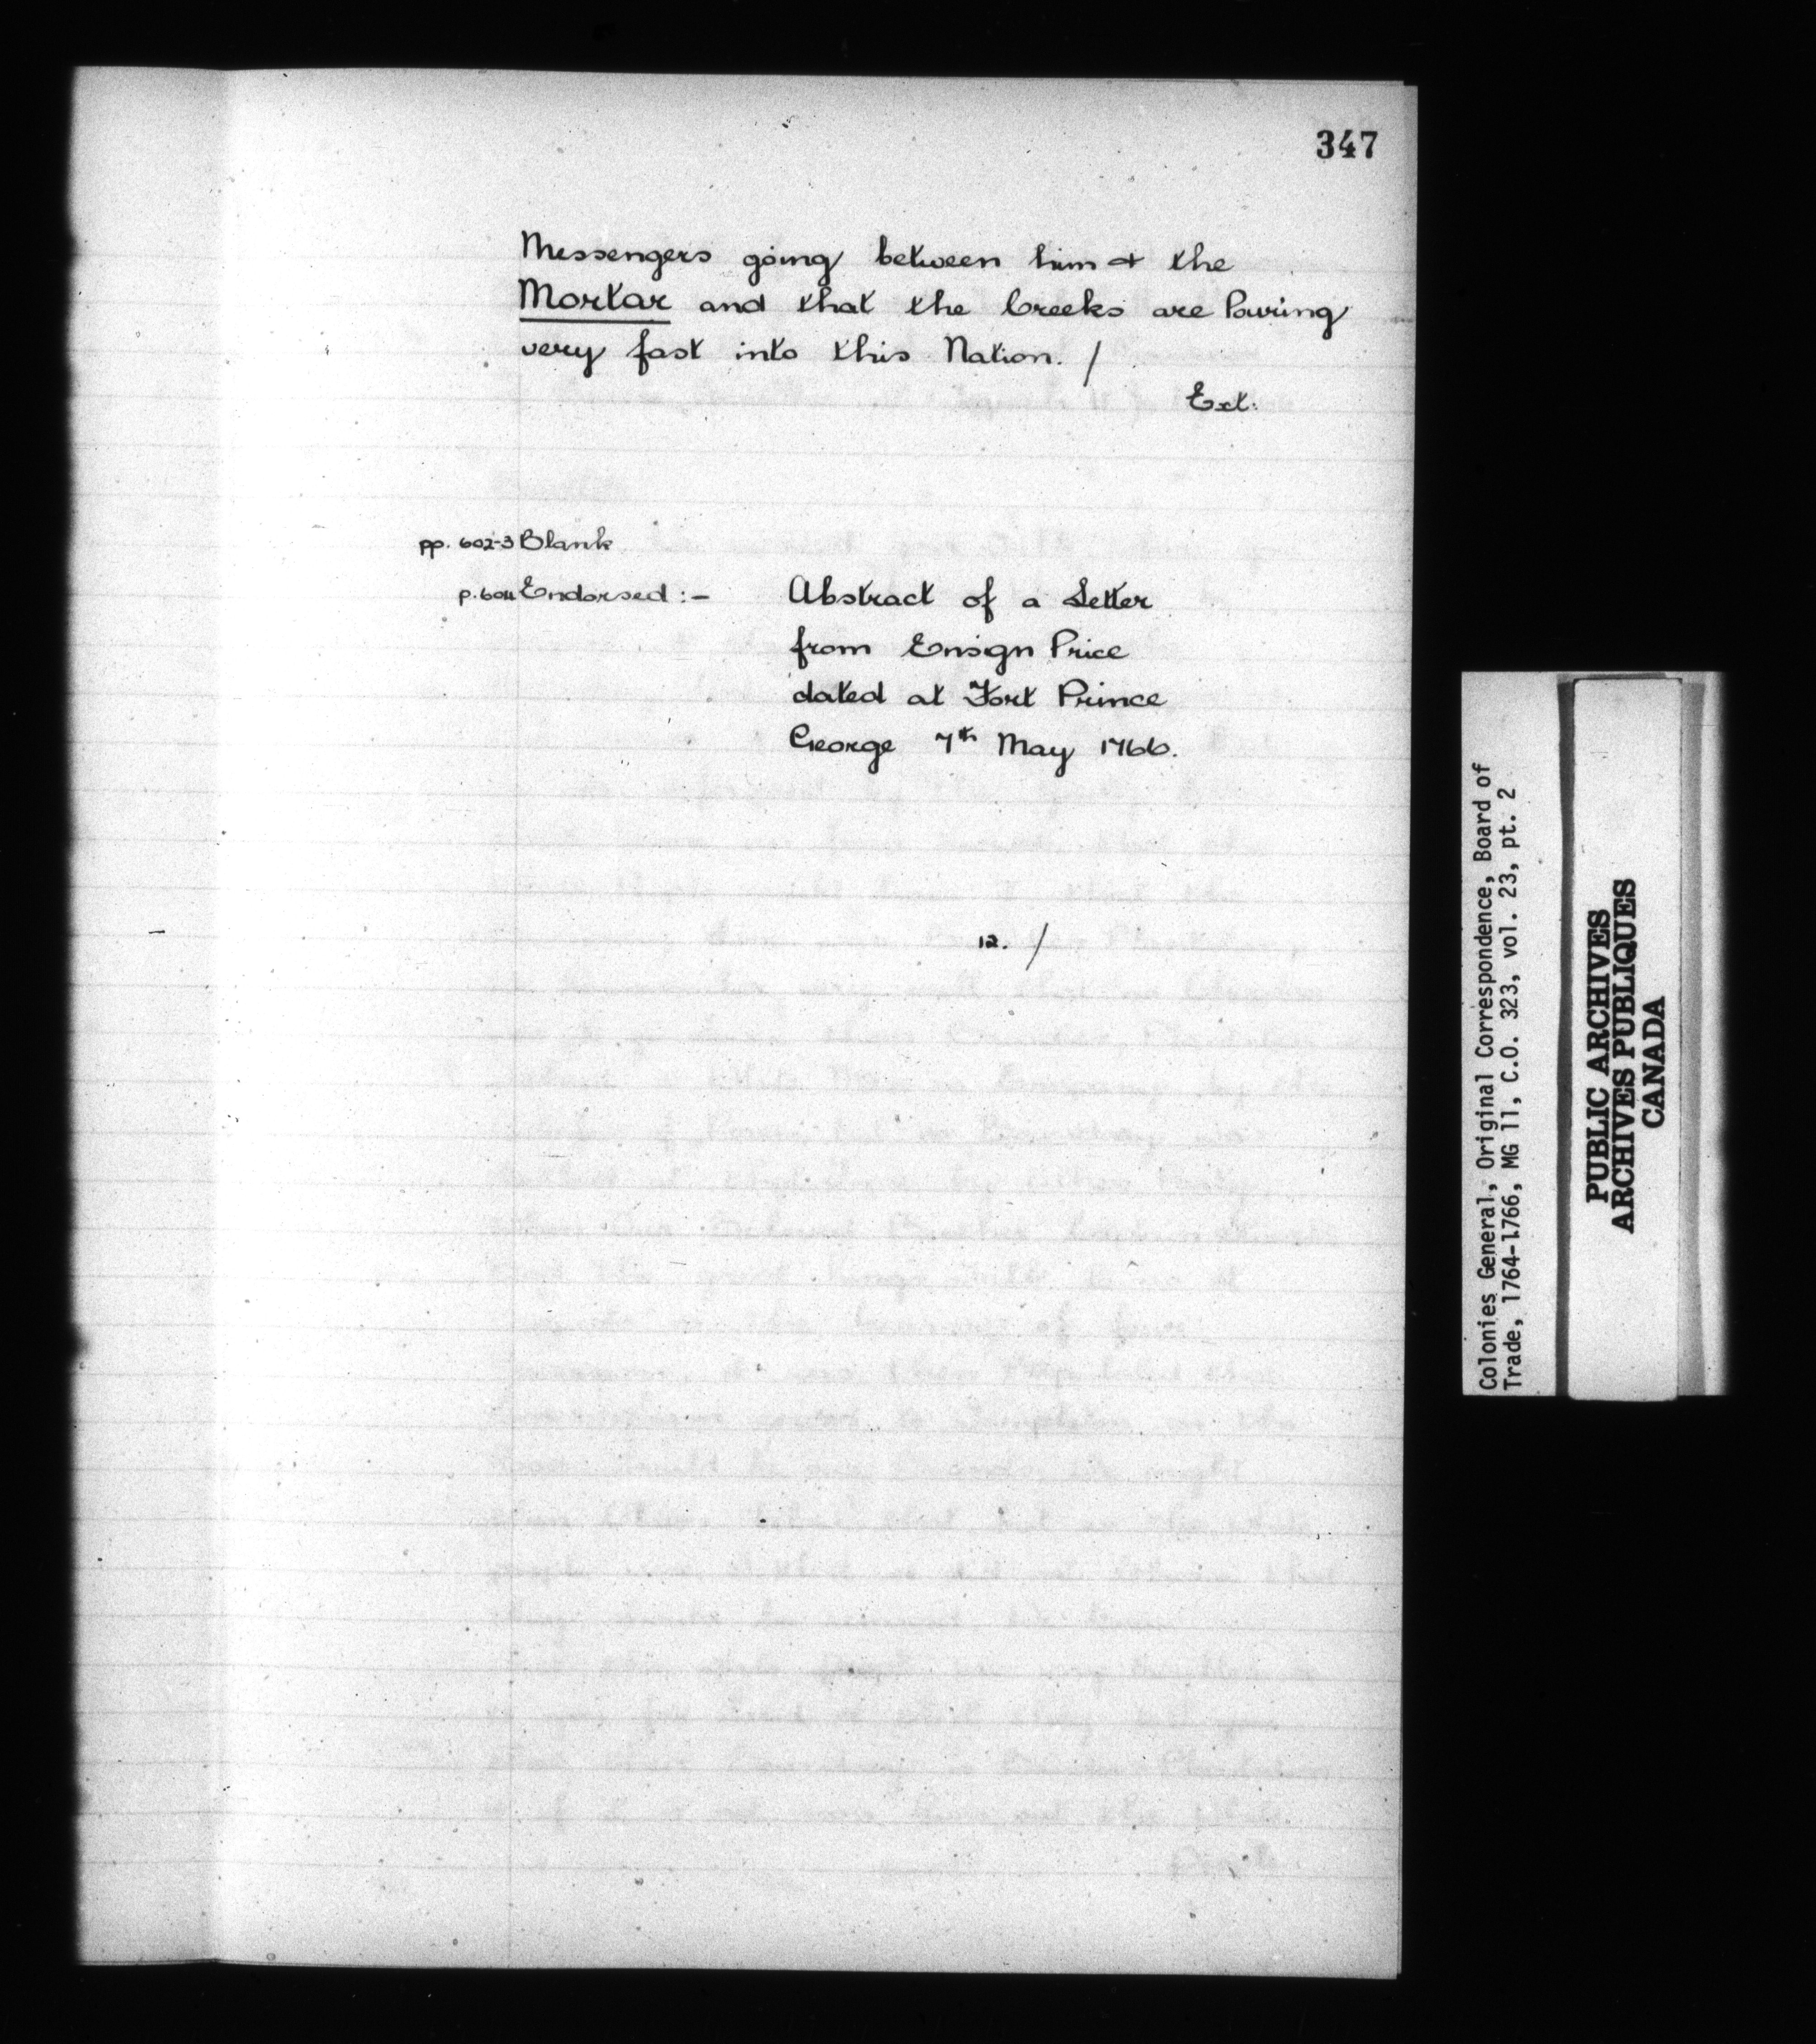 347
Messengers going between him & the
Mortar and that the Creeks are Pouring
very fast into this Nation. /
Ext.
pp. 602-3 Blank
p. 604 Endorsed :- Abstract of a Letter
from Ensign Price
dated at Fort Prince
George 7th May 1766.
12. /
Colonies General, Original Correspondence, Board of
Trade, 1764-1766, MG 11, C.O. 323, vol. 23, pt. 2
PUBLIC ARCHIVES
ARCHIVES PUBLIQUES
CANADA